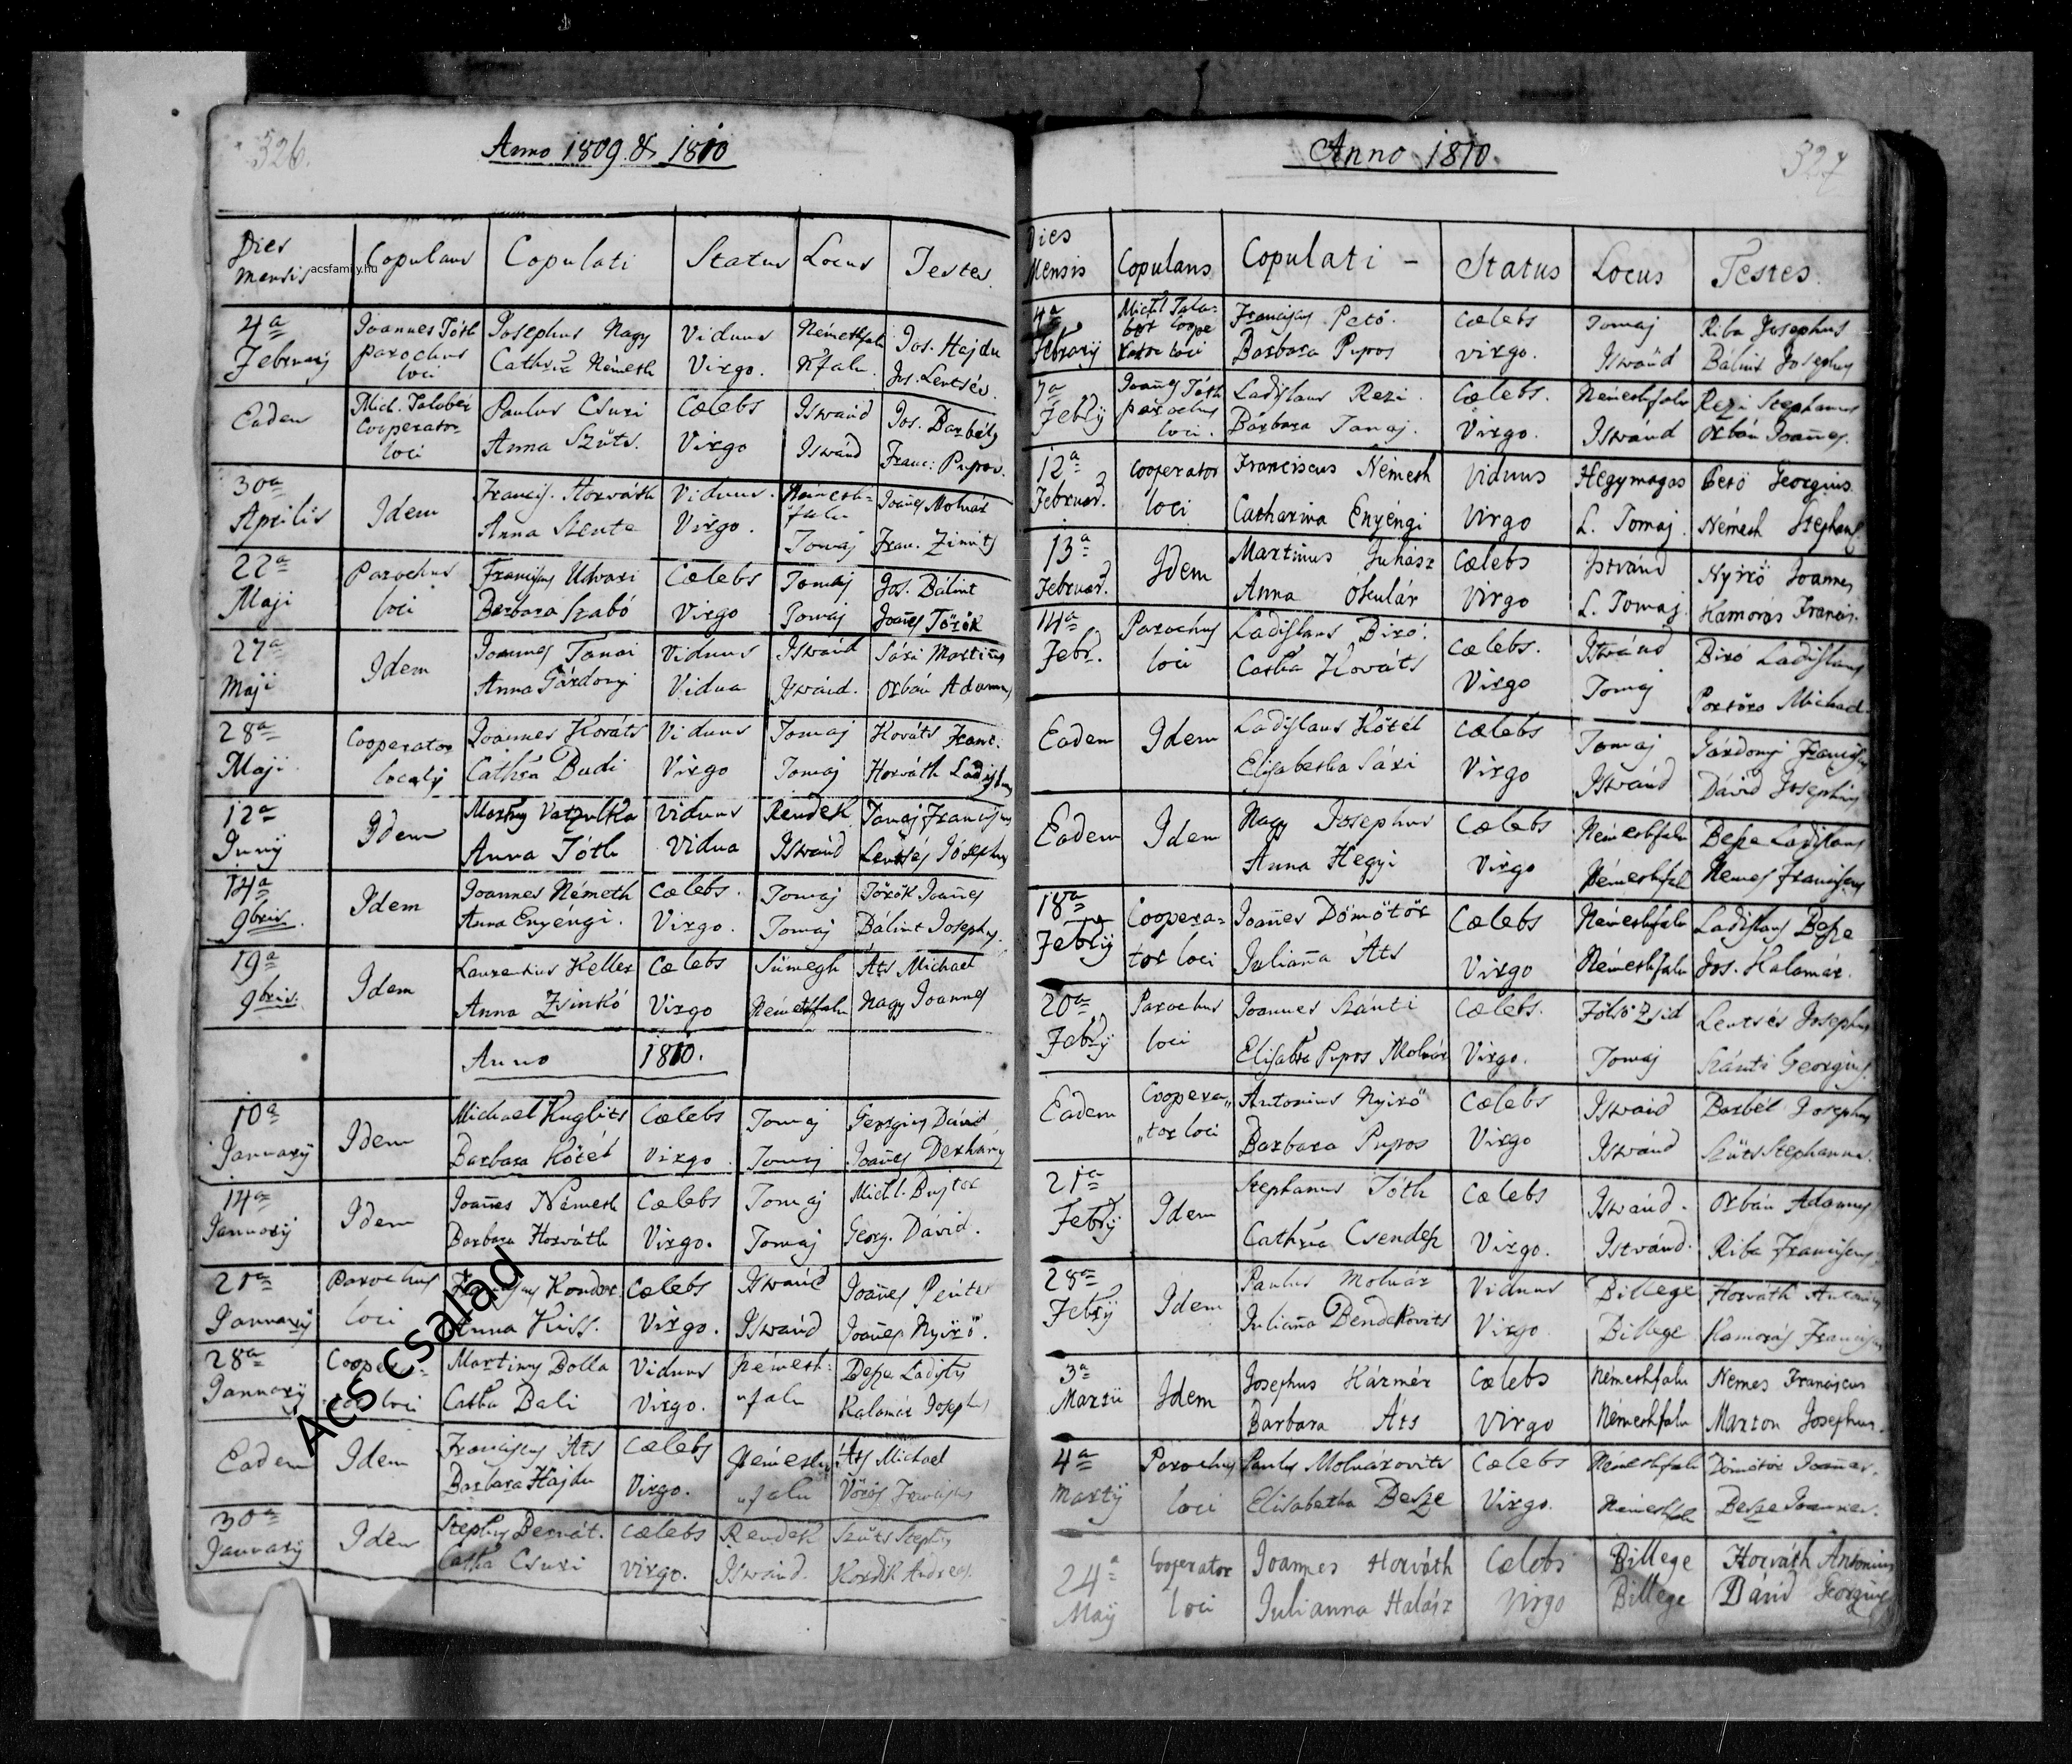 326.
Anno 1809. & 1810
Dies Mensis Copulans Copulati Status Locus Testes.
acsfamily.hu
4a Februarij Joannes Tóth Parochus loci
Josephus Nagy Viduus Némethfalu Jos. Hajdu
Virgo. Nfalu. Jos. Lentsés.
Eadem Cooperator loci
Paulus Csuri Cælebs Istvánd
Anna Szüts. Virgo Istvánd Franc: Pupos.
30a Aprilis Idem
Francis. Horváth Viduus. Németh= falu Joañes Molnár
Anna Szente Virgo. Tomaj Fran.
22a Maji Parochus loci
Franciscus Udvari Cælebs Tomaj Jos. Bálint
Barbara Szabó Virgo Tomaj Joañes Török
27a Maji Idem
Joannes Tanai Viduus Istvánd Sári Martiñus
Anna Gárdonyi Vidua Istvánd. Orbán Adamus
28a Maji Cooperator localis
Joannes Kováts Viduus Tomaj Kováts Franc.
Virgo Tomaj Horváth Ladislaus
12a Junij Idem
Viduus Rendek Tanaj Franciscus
Anna Tóth Vidua Istvánd Lentsés Jósephus
14a 9bris. Idem
Joannes Németh Cælebs. Tomaj Török Joañes
Anna Enyéngi. Virgo. Tomaj Bálint Josephus.
19a 9bris. Idem
Laurentius Keller Cælebs Sümegh Áts Michael
Anna Zsinkó Virgo Némethfalu Nagy Joannes
Anno 1810.
10a Januarij Idem
Michael Kuglits Cælebs Tomaj Georgius Dávid
Barbara Kötél Virgo. Tomaj Joañes
14a Januarij Idem
Joañes Németh Cælebs Tomaj Mich. Bujtor
Barbara Horváth Virgo. Tomaj Georg. Dávid.
21a Januarij Parochus loci
Franciscus Kondor Cælebs Istvánd Joañes Péntek
Anna Kiss. Virgo. Istvánd Joañes Nyirö.
28a Januarij loci
Martinus Dolla Viduus Németh= Ladisl.
Cath̃a Bali Virgo. "falu Kalamár Joseph
Eadem Idem
Franciscus Áts Cælebs Németh Áts Michael
Barbara Hajdu Virgo. "falu Vörös Franciscus
30a Januarij Idem
Stephus Bernát. Cælebs Rendek Szüts Stephus
Cath̃a Csuri Virgo. Istvánd. Kordik Andreas.
Ács család
327
Anno 1810.
Dies Mensis Copulans Copulati – Status Locus Testes.
4a Februarij loci
Franciscus Pető. Cælebs Tomaj Riba Josephus
Barbara Pupos Virgo. Istvánd Bálint Josephus
7a Febrij Joañes Tóth parochus loci.
Ladislaus Rezi. Cælebs. Némethfalu Rezi Stephanus
Barbara Tanaj. Virgo. Istvánd Orbán Joañes.
12a Februar. Cooperator loci
Franciscus Németh Viduus Hegymagas Pető Georgius.
Catharina Enyéngi Virgo L. Tomaj Németh Stephanus
13a Februar. Idem
Martinus Juhász Cælebs Istvánd Nyirő Joannes
Anna Ókulár Virgo L. Tomaj. Kamorás Francis.
14a Febr. Parochus loci
Ladislaus Biró. Cælebs. Istvánd Biró Ladislaus
Cath̃a Kováts Virgo Tomaj Portöro Michael.
Eadem Idem
Ladislaus Kötél Cælebs Tomaj Gárdonyi Franciscus
Elisabetha Sári Virgo Istvánd Dávid Josephus
Eadem Idem
Nagy Josephus Cælebs Némethfalu Besze Ladislaus
Anna Hegyi Virgo Némethfal Nemes Franciscus
18a Febrij Coopera= tor loci
Joañes Dömötör Cælebs Némethfalu Ladislaus Besze
Juliaña Áts Virgo Némethfalu Jos. Kalamár.
20a Febrij Parochus loci
Joannes Szánti Cælebs. Fölső Zsid Lentsés Josephus
Pupos Molnár Virgo. Tomaj Szánti Georgius.
Eadem Coopera" "tor loci
Antonius Nyirő Cælebs Istvánd Josephus
Barbara Pupos Virgo Istvánd Szüts Stephanus.
21a Febrij Idem
Stephanus Tóth Cælebs Istvánd. Orbán Adamus
Cathr̃ia Csendesz Virgo. Istvánd. Riba Franciscus.
28a Febrij Idem
Paulus Molnár Viduus Billege Horváth Antonius
Juliaña Bendekovits Virgo Billege Kamorás Franciscus
3a Martii Idem
Josephus Hármér Cælebs Némethfalu Nemes Franciscus
Barbara Áts Virgo Némethfalu Marton Josephus.
4a Martij Parochus loci
Paulus Molnárovits Cælebs Némethfalu Dömötör Joañes.
Elisabetha Besze Virgo. Némethfalu Besze Joannes.
24a Maij Cooperator loci
Joannes Horváth Cælebs Billege Horváth Antonius
Julianna Halász Virgo Billege Dávid Georgius